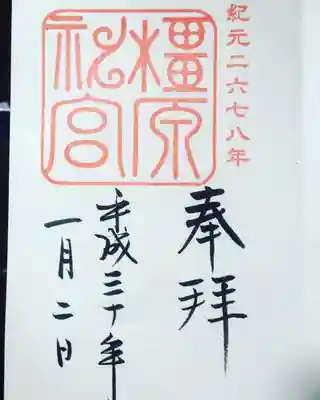 紀元二六七八年
橿原
神宮
奉拝
平成三十年
一月二日